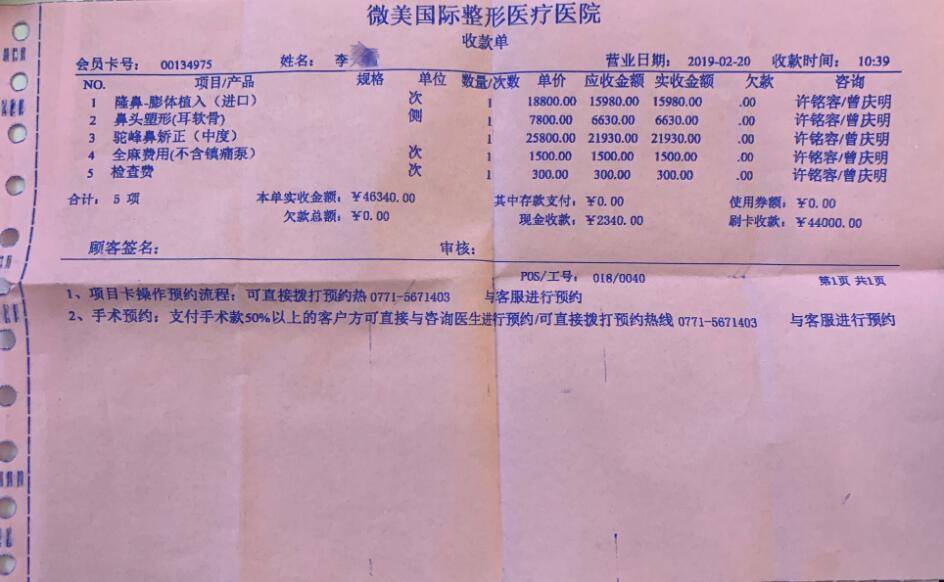 微美国际整形医疗医院
收款单
会员卡号： 00134975 姓名： 李 营业日期： 2019-02-20 收款时间： 10:39
NO. 项目/产品 规格 单位 数量/次数 单价 应收金额 实收金额 欠款 咨询
1 隆鼻-膨体植入（进口） 次 1 18800.00 15980.00 15980.00 .00 许铭容/曾庆明
2 鼻头塑形(耳软骨) 侧 1 7800.00 6630.00 6630.00 .00 许铭容/曾庆明
3 驼峰鼻矫正（中度） 1 25800.00 21930.00 21930.00 .00 许铭容/曾庆明
4 全麻费用(不含镇痛泵) 次 1 1500.00 1500.00 1500.00 .00 许铭容/曾庆明
5 检查费 次 1 300.00 300.00 300.00 .00 许铭容/曾庆明
合计： 5 项 本单实收金额：￥46340.00 其中存款支付：￥0.00 使用券额：￥0.00
欠款总额：￥0.00 现金收款：￥2340.00 刷卡收款：￥44000.00
顾客签名： 审核：
POS/工号： 018/0040 第1页 共1页
1、项目卡操作预约流程：可直接拨打预约热 0771-5671403 与客服进行预约
2、手术预约：支付手术款50%以上的客户方可直接与咨询医生进行预约/可直接拨打预约热线 0771-5671403 与客服进行预约